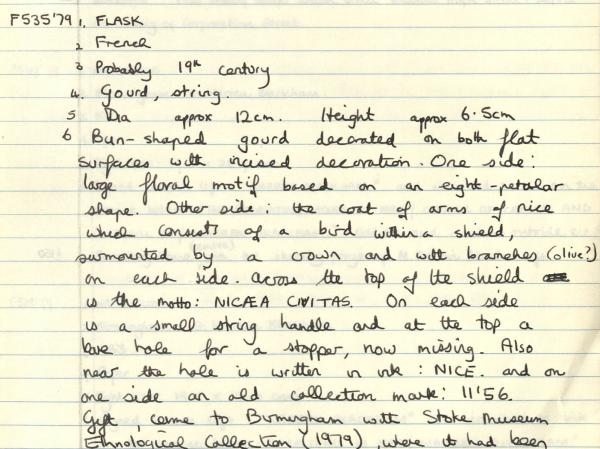 F535'79 1. FLASK
2 French
3 Probably 19th century
4. Gourd, string.
5 Dia approx 12cm. Height approx 6.5cm
6 Bun-shaped gourd decorated on both flat
surfaces with incised decoration. One side:
large floral motif based on an eight-petalar
shape. Other side: the coat of arms of nice
which consists of a bird within a shield,
surmounted by a crown and with branches (olive?)
on each side. across the top of the shield
is the motto: NICÆA CIVITAS. On each side
is a small string handle and at the top a
hole for a stopper, now missing. Also
near the hole is written in ink: NICE. and on
one side an old collection mark: 11'56.
Gift, came to Birmingham with Stoke Museum
Ethnological Collection (1979), where it had been